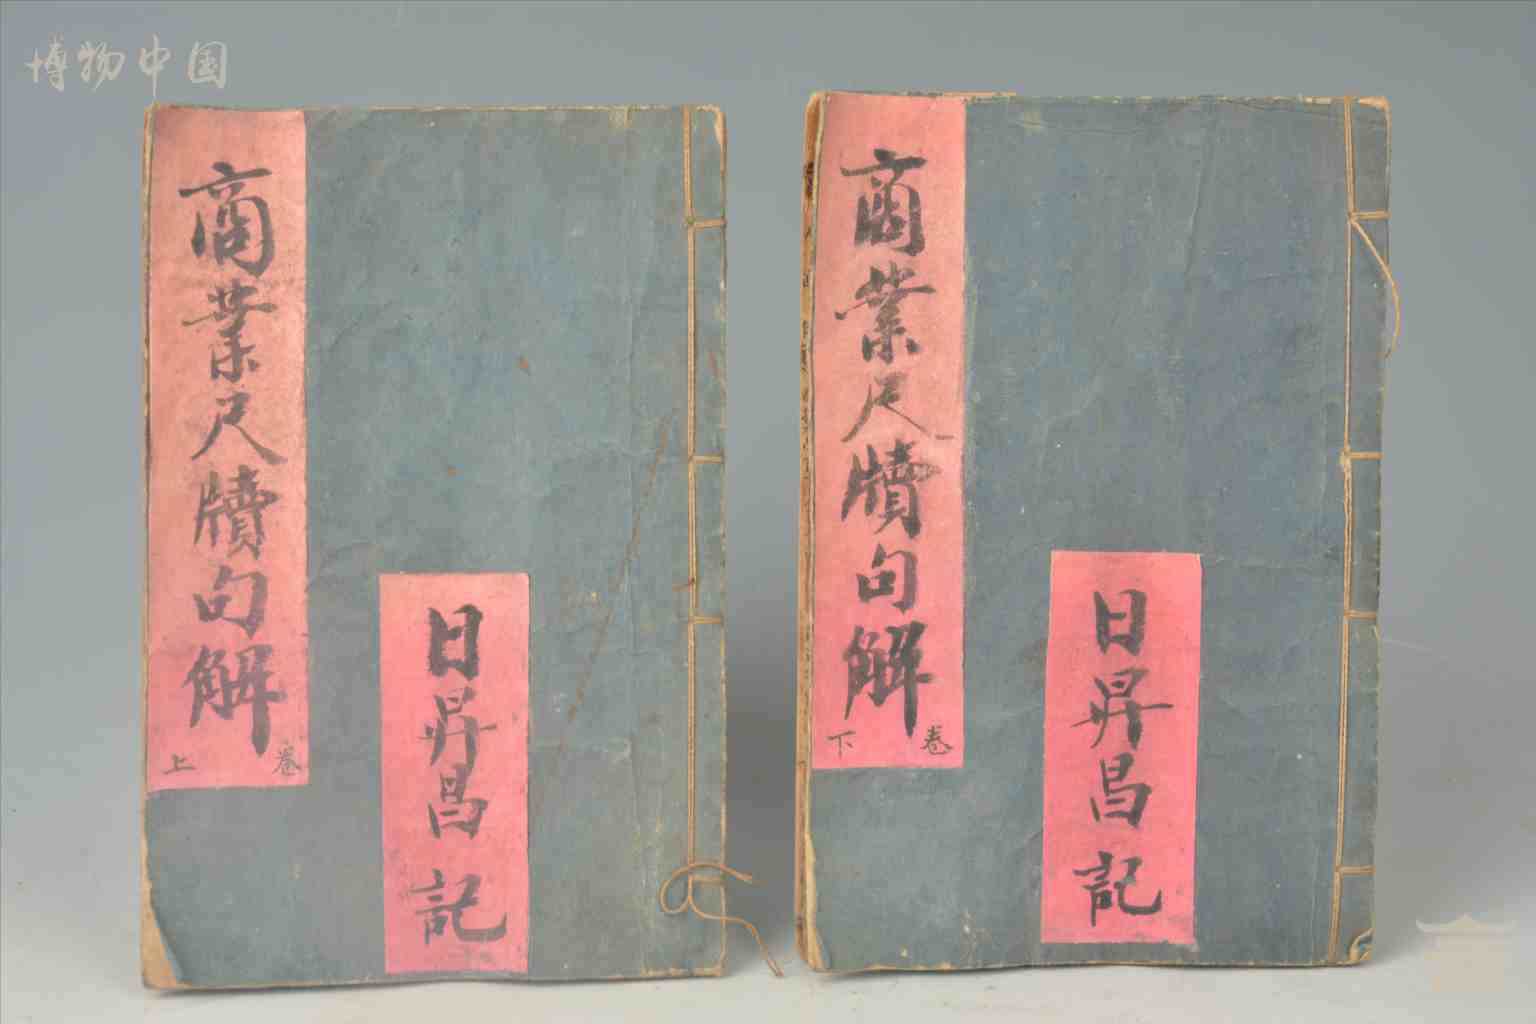 博物中国
商業尺牘句解
卷上
日昇昌記
商業尺牘句解
卷下
日昇昌記